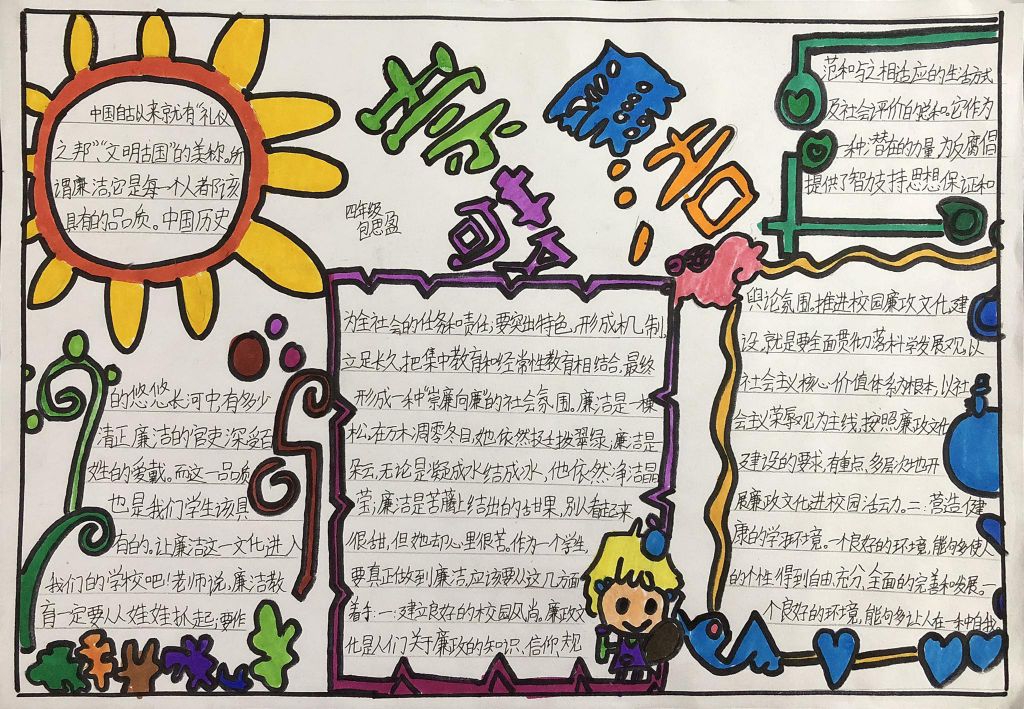 共创廉洁校园
四年级
包思盈
中国自古以来就有“礼仪
之邦”、“文明古国”的美称。所
谓廉洁,它是每一个人都该
具有的品质。中国历史
的悠悠长河中,有多少
清正廉洁的官吏深受百
姓的爱戴。而这一品质
也是我们学生该具
有的。让廉洁这一文化进入
我们的学校吧!老师说,廉洁教
育一定要从娃娃抓起;要作
为全社会的任务和责任;要突出特色,形成机制,
立足长久,把集中教育和经常性教育相结合,最终
形成一种“崇廉向廉”的社会氛围。廉洁是一棵
松,在万木凋零冬日,她依然挺拔翠绿;廉洁是
朵云,无论是凝成水结成冰,他依然净洁晶
莹;廉洁是苦藤上结出的甜果,别人看起来
很甜,但她却心里很苦。作为一个学生,
要真正做到廉洁,应该要从这几方面
着手:一:建立良好的校园风尚。廉政文
化是人们关于廉政的知识、信仰、规
范和与之相适应的生活方式
及社会评价的总和。它作为
一种潜在的力量为反腐倡
提供了智力支持、思想保证和
舆论氛围。推进校园廉政文化建
设,就是要全面贯彻落科学发展观,以
社会主义核心价值体系为根本,以社
会主义荣辱观为主线,按照廉政文化
建设的要求,有重点,多层次地开
展廉政文化进校园活动。二:营造健
康的学习环境。一个良好的环境,能够使人
的个性得到自由、充分、全面的完善和发展。一
个良好的环境,能够让人在一种自我